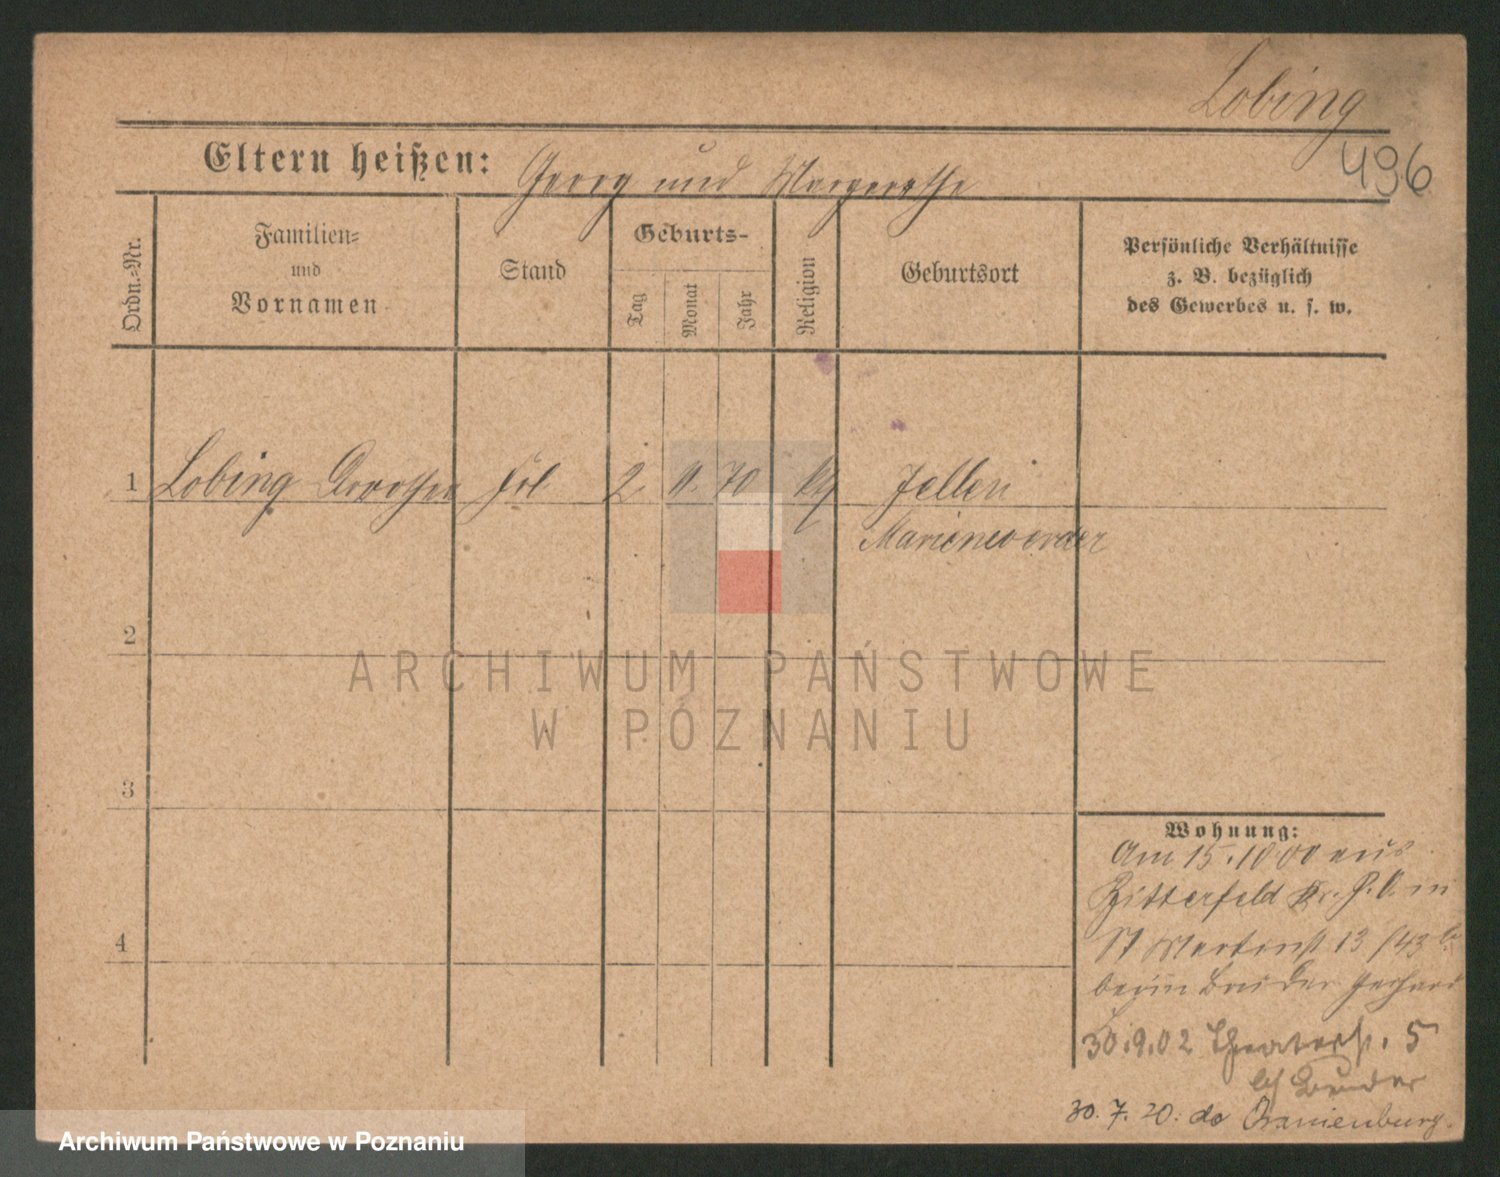 Lobing
496
Eltern heißen: Georg und Margarethe
Ordn.=Nr.
Familien=
und
Vornamen
Stand
Geburts-
Tag
Monat
Jahr
Religion
Geburtsort
Persönliche Verhältnisse
z. B. bezüglich
des Gewerbes u. s. w.
1 Lobing Dorothea Frl 2 11. 70
Marienwerder
2
3
4
Wohnung:
Am 15.10.00 aus
Bitterfeld
St Martinst 13
beim Bruder Gerhard
30.9.02 Theaterst. 5
b/ Bruder
30. 7. 20. do Oranienburg.
ARCHIWUM PAŃSTWOWE
W POZNANIU
Archiwum Państwowe w Poznaniu